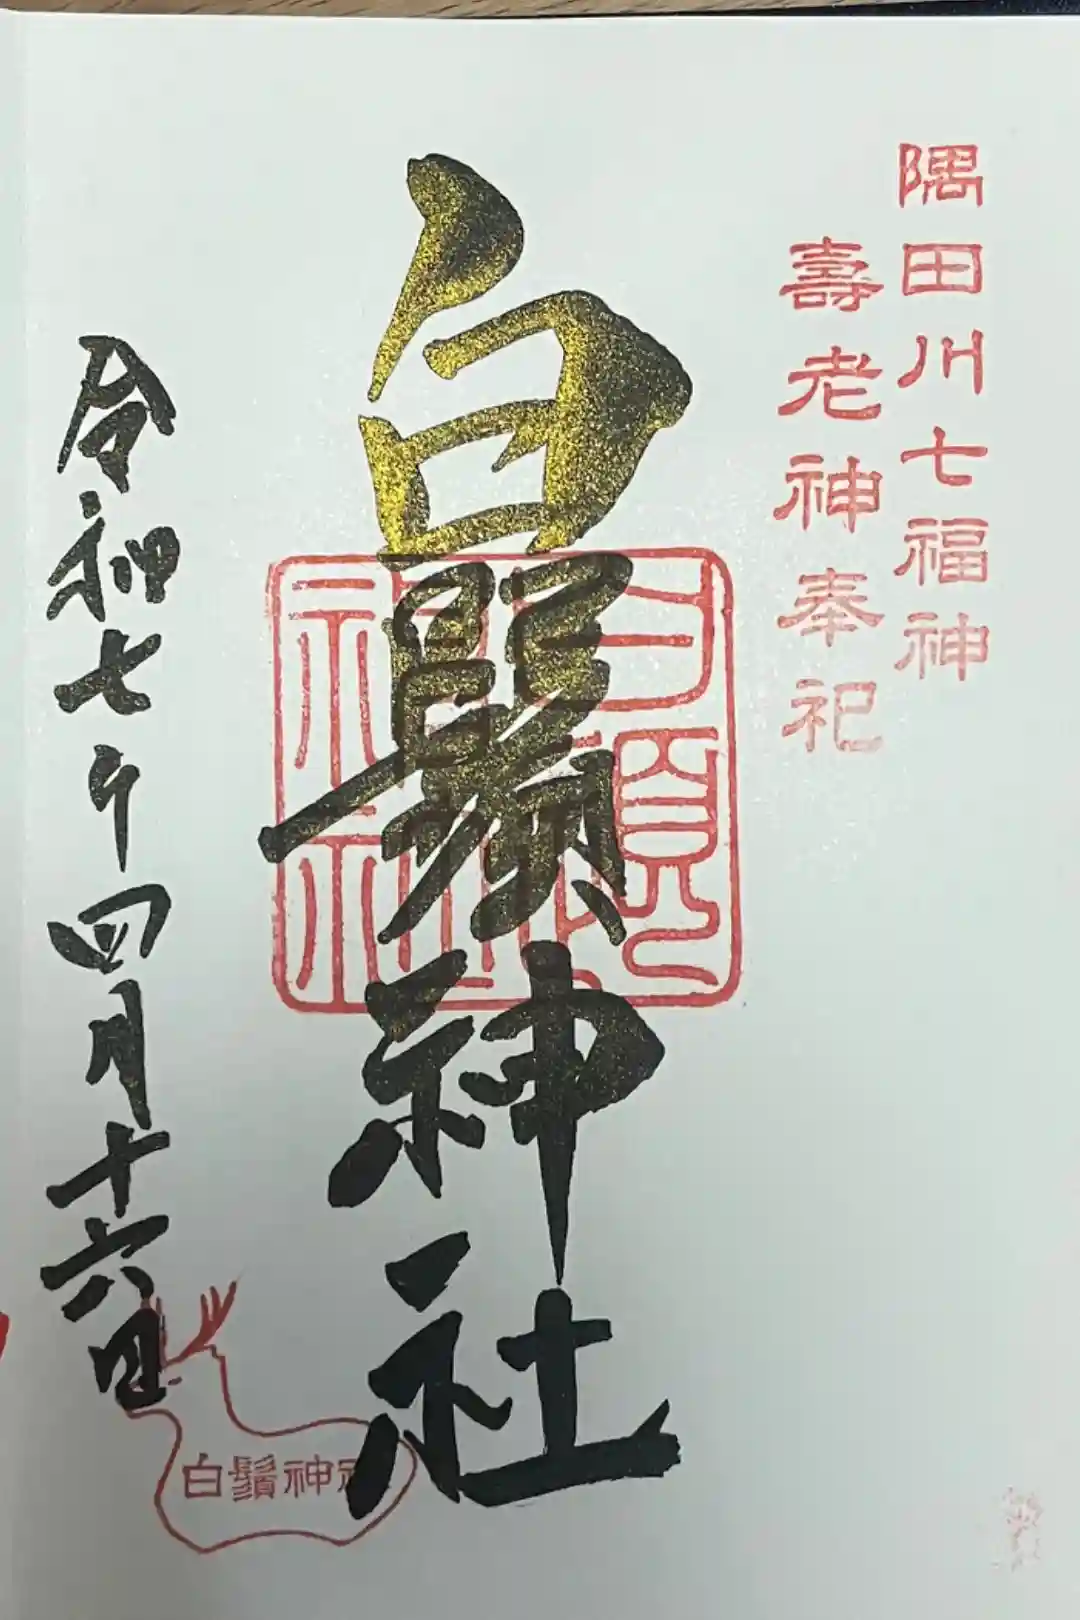 隅田川七福神
壽老神奉祀
白鬚神社
令和七年四月十六日
白鬚神社